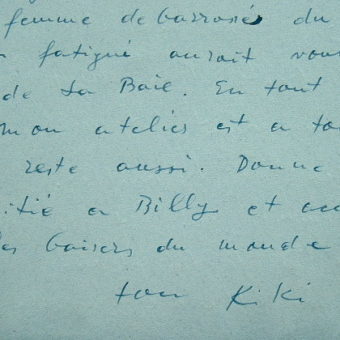 femme debarrassé du
fatigué aurait vous
de La Baie. En tout
mon atelier est a to
reste aussi. Donne
itié a Billy et
es baisers du monde
ton Kiki